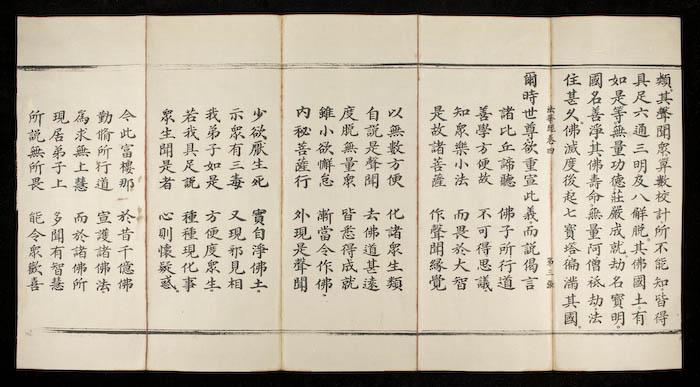 類其聲聞眾算數校計所不能知皆得
具足六通三明及八解脫其佛國土有
如是等無量功德莊嚴成就劫名寶明
國名善淨其佛壽命無量阿僧祇劫法
住甚久佛滅度後起七寶塔徧滿其國
法華經卷四 第三張
爾時世尊欲重宣此義而說偈言
諸比丘諦聽 佛子所行道
善學方便故 不可得思議
知眾樂小法 而畏於大智
是故諸菩薩 作聲聞緣覺
以無數方便 化諸眾生類
自說是聲聞 去佛道甚遠
度脫無量眾 皆悉得成就
雖小欲懈怠 漸當令作佛
內秘菩薩行 外現是聲聞
少欲厭生死 實自淨佛土
示眾有三毒 又現邪見相
我弟子如是 方便度眾生
若我具足說 種種現化事
眾生聞是者 心則懷疑惑
令此富樓那 於昔千億佛
勤脩所行道 宣護諸佛法
為求無上慧 而於諸佛所
現居弟子上 多聞有智慧
所說無所畏 能令眾歡喜